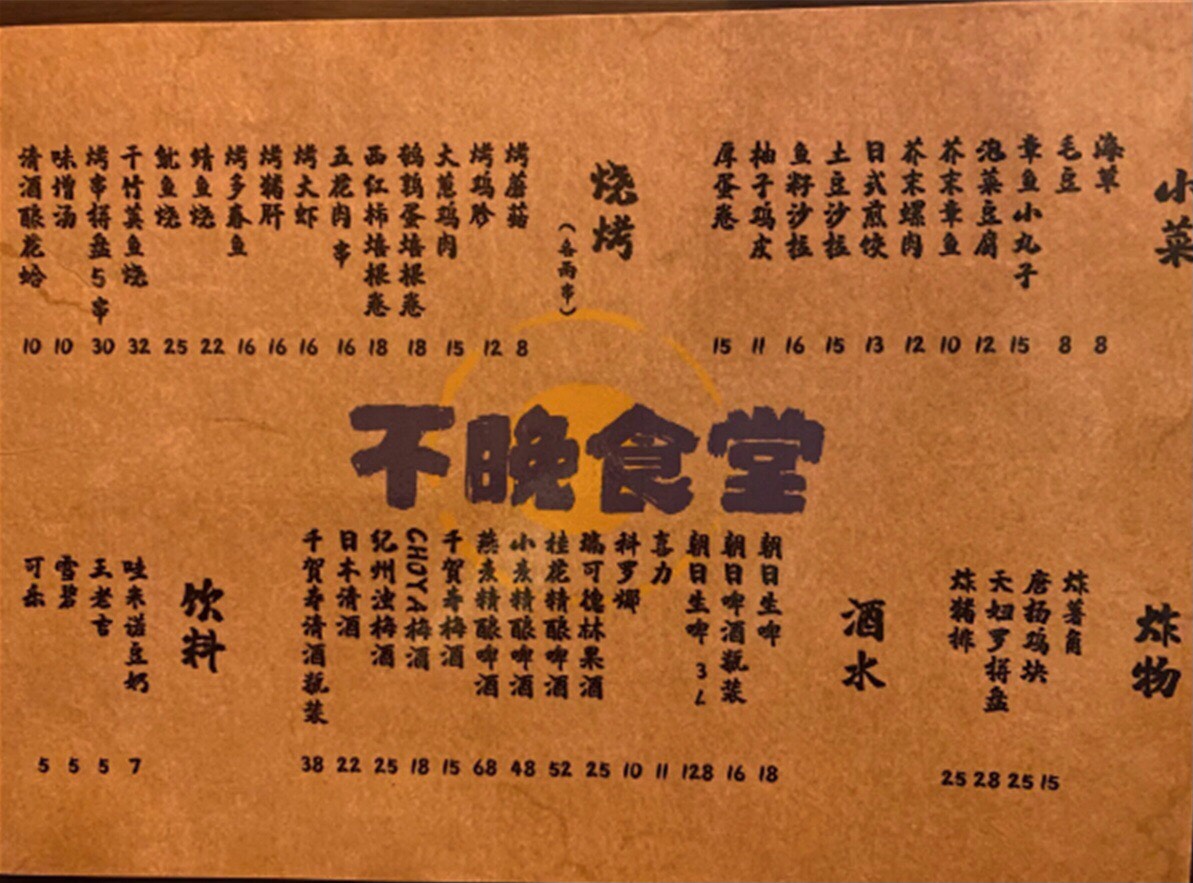 小菜
海草 8
毛豆 8
章鱼小丸子 15
泡菜豆腐 12
芥末章鱼 10
芥末螺肉 12
日式煎饺 13
土豆沙拉 15
鱼籽沙拉 16
柚子鸡皮 11
厚蛋卷 15
烧烤
(各两串)
烤蘑菇 8
烤鸡胗 12
大葱鸡肉 15
鹌鹑蛋培根卷 18
西红柿培根卷 18
五花肉串 16
烤大虾 16
烤猪肝 16
烤多春鱼 16
鲭鱼烧 22
鱿鱼烧 25
干竹荚鱼烧 32
烤串拼盘5串 30
味增汤 10
清酒酿花蛤 10
不晚食堂
炸物
炸薯角 15
唐扬鸡块 25
天妇罗拼盘 28
炸猪排 25
酒水
朝日生啤 18
朝日啤酒瓶装 16
朝日生啤3L 128
喜力 11
科罗娜 10
瑞可德林果酒 25
桂花精酿啤酒 52
小麦精酿啤酒 48
燕麦精酿啤酒 68
千贺寿梅酒 15
CHOYA梅酒 18
纪州浊梅酒 25
日本清酒 22
千贺寿清酒瓶装 38
饮料
哇米诺豆奶 7
王老吉 5
雪碧 5
可乐 5